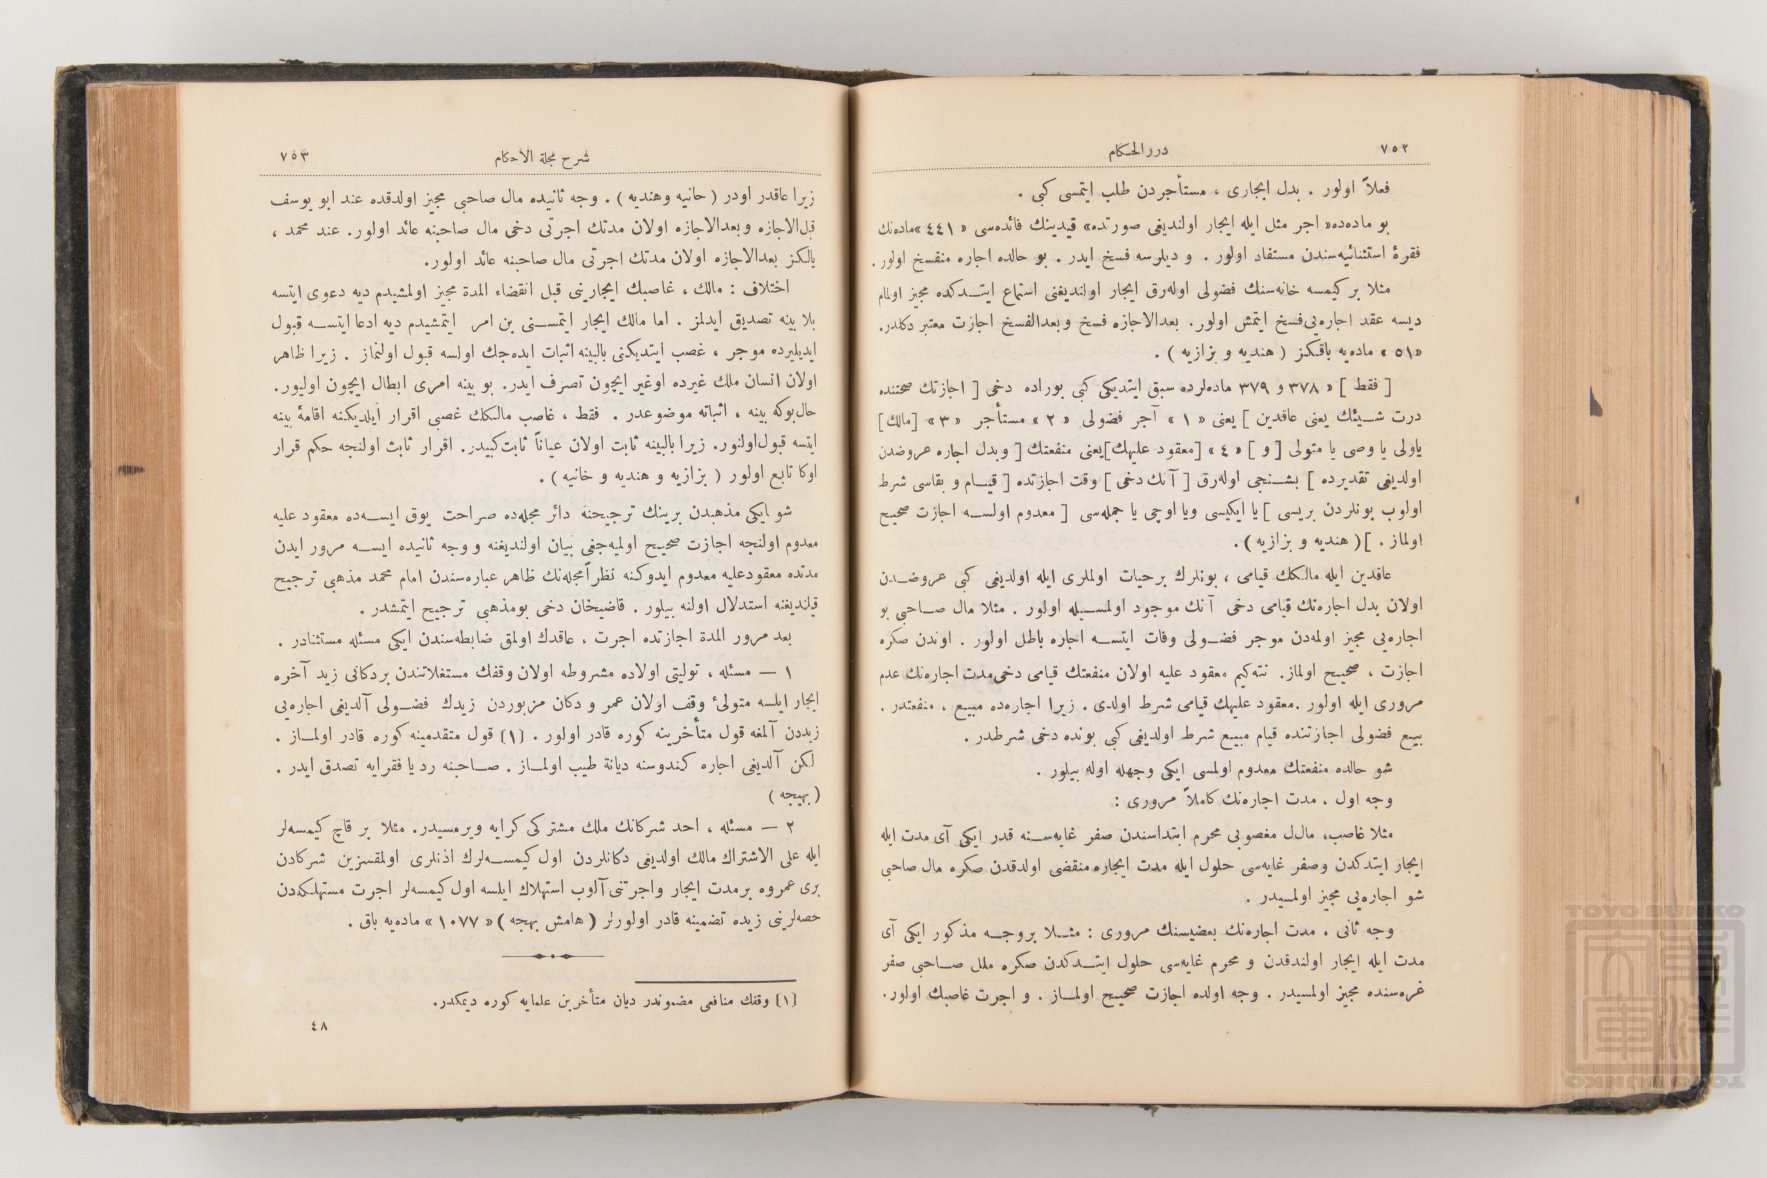 ٧٥٢
دررالحكام
فعلاً اولور . بدل ايجارى ، مستأجردن طلب ايتمسى كبى .
بو ماده‌ده« اجر مثل ايله ايجار اولنديغى صورتده» قيدينك فائده‌سى « ٤٤١ »ماده‌نك
فقرۀ استثنائيه‌سندن مستفاد اولور . و ديلرسه فسخ ايدر . بو حالده اجاره منفسخ اولور .
مثلا بر كيمسه خانه‌سنك فضولى اوله‌رق ايجار اولنديغنى استماع ايتدكده مجيز اولمام
ديسه عقد اجاره‌يى فسخ ايتمش اولور. بعدالاجازه فسخ و بعدالفسخ اجازت معتبر دكلدر.
«٥١ » ماده‌يه باقكز ( هنديه و بزازيه ) .
[ فقط ] « ٣٧٨ و ٣٧٩ ماده‌لرده سبق ايتديكى كبى بوراده دخى [ اجازتك صحتنده
درت شيئك يعنى عاقدين ] يعنى « ١ » آجر فضولى « ٢ » مستأجر « ٣ » [مالك]
ياولى يا وصى يا متولى [ و ] « ٤ » [معقود عليهك]يعنى منفعتك [ وبدل اجاره عروضدن
اولديغى تقديرده ] بشنجى اوله‌رق [ آنك دخى ] وقت اجازتده [ قيام و بقاسى شرط
اولوب بونلردن بريسى ] يا ايكيسى ويا اوچى يا جمله‌سى [ معدوم اولسه اجازت صحيح
اولماز . ]( هنديه و بزازيه ) .
عاقدين ايله مالكك قيامى ، بونلرك برحيات اولملرى ايله اولديغى كبى عروضدن
اولان بدل اجاره‌نك قيامى دخى آنك موجود اولمسيله اولور . مثلا مال صاحبى بو
اجاره‌يى مجيز اولمه‌دن موجر فضولى وفات ايتسه اجاره باطل اولور . اوندن صكره
اجازت ، صحيح اولماز. نته‌كيم معقود عليه اولان منفعتك قيامى دخى مدت اجاره‌نك عدم
مرورى ايله اولور .معقود عليهك قيامى شرط اولدى . زيرا اجاره‌ده مبيع ، منفعتدر .
بيع فضولى اجازتنده قيام مبيع شرط اولديغى كبى بونده دخى شرطدر .
شو حالده منفعتك معدوم اولمسى ايكى وجهله اوله بيلور .
وجه اول ، مدت اجاره‌نك كاملاً مرورى :
مثلا غاصب، مال مغصوبى محرم ابتداسندن صفر غايه‌سنه قدر ايكى آى مدت ايله
ايجار ايتدكدن وصفر غايه‌سى حلول ايله مدت ايجاره منقضى اولدقدن صكره مال صاحبى
شو اجاره‌يى مجيز اولمسيدر .
وجه ثانى . مدت اجاره‌نك بعضيسنك مرورى : مثلا بروجه مذكور ايكى آى
مدت ايله ايجار اولندقدن و محرم غايه‌سى حلول ايتدكدن صكره مال صاحبى صفر
غره‌سنده مجيز اولمسيدر . وجه اولده اجازت صحيح اولماز . و اجرت غاصبك اولور.
شرح مجلة الاحكام
٧٥٣
زيرا عاقدر اودر ( خانيه وهنديه ) . وجه ثانيده مال صاحبى مجيز اولدقده عند ابو يوسف
قبل‌الاجازه و بعدالاجازه اولان مدتك اجرتى دخى مال صاحبنه عائد اولور. عند محمد ،
يالكز بعدالاجازه اولان مدتك اجرتى مال صاحبنه عائد اولور.
اختلاف : مالك ، غاصبك ايجارينى قبل انقضاء المدة مجيز اولمشيدم ديه دعوى ايتسه
بلا بينه تصديق ايدلمز . اما مالك ايجار ايتمسنى بن امر ايتمشيدم ديه ادعا ايتسه قبول
ايديليرده موجر ، غصب ايتديكنى بالبينه اثبات ايده‌جك اولسه قبول اولنماز . زيرا ظاهر
اولان انسان ملك غيرده اوغير ايچون تصرف ايدر. بو بينه امرى ابطال ايچون اوليور.
حال‌بوكه بينه ، اثباته موضوعدر . فقط ، غاصب مالكك غصبى اقرار ايلديكنه اقامۀ بينه
ايتسه قبول‌اولنور. زيرا بالبينه ثابت اولان عياناً ثابت‌كبيدر. اقرار ثابت اولنجه حكم قرار
اوكا تابع اولور ( بزازيه و هنديه و خانيه ) .
شو ايكى مذهبدن برينك ترجيحنه دائر مجله‌ده صراحت يوق ايسه‌ده معقود عليه
معدوم اولنجه اجازت صحيح اولميه‌جغى بيان اولنديغنه و وجه ثانيده ايسه مرور ايدن
مدتده معقودعليه معدوم ايدوكنه نظراً مجله‌نك ظاهر عباره‌سندن امام محمد مذهبى ترجيح
قيلنديغنه استدلال اولنه بيلور . قاضيخان دخى بومذهبى ترجيح ايتمشدر .
بعد مرور المدة اجازتده اجرت ، عاقدك اولمق ضابطه‌سندن ايكى مسئله مستثنادر .
١ — مسئله ، توليتى اولاده مشروطه اولان وقفك مستغلاتندن بردكانى زيد آخره
ايجار ايلسه متولئ وقف اولان عمر و دكان مزبوردن زيدك فضولى آلديغى اجاره‌يى
زيددن آلمغه قول متأخرينه كوره قادر اولور . (١) قول متقدمينه كوره قادر اولماز .
لكن آلديغى اجاره كندوسنه ديانة طيب اولماز . صاحبنه رد يا فقرايه تصدق ايدر .
( بهيجه )
٢ — مسئله ، احد شركانك ملك مشتركى كرايه ويرمسيدر. مثلا بر قاچ كيمسه‌لر
ايله على الاشتراك مالك اولديغى دكانلردن اول كيمسه‌لرك اذنلرى اولمقسزين شركادن
برى عمروه برمدت ايجار واجرتنى آلوب استهلاك ايلسه اول كيمسه‌لر اجرت مستهلكه‌دن
حصه‌لرينى زيده تضمينه قادر اولورلر ( هامش بهجه ) « ١٠٧٧ » ماده‌يه باق .
(١) وقفك منافعى مضموندر ديان متأخرين علمايه كوره ديمكدر.
٤٨
TOYO BUNKO
TOYO BUNKO